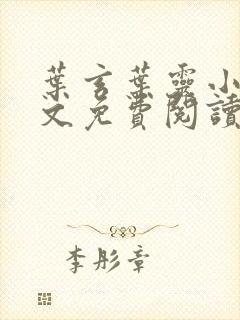 葉言葉靈小
文免費閱讀
李彤章